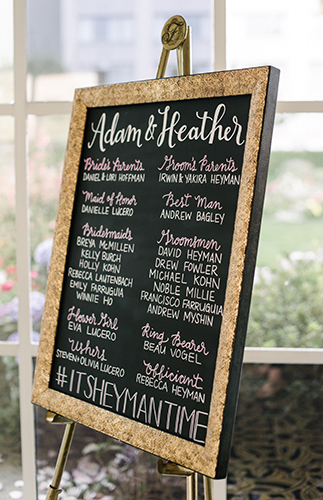 Adam & Heather
Bride's Parents
DANIEL & LORI HOFFMAN
Groom's Parents
IRWIN & YAKIRA HEYMAN
Maid of Honor
DANIELLE LUCERO
Best Man
ANDREW BAGLEY
Bridesmaids
BREYA McMILLEN
KELLY BURCH
HOLLY KOHN
REBECCA LAUTENBACH
EMILY FARRUGIA
WINNIE HO
Groomsmen
DAVID HEYMAN
DREW FOWLER
MICHAEL KOHN
NOBLE MILLIE
FRANCISCO FARRUGIA
ANDREW MYSHIN
Flower Girl
EVA LUCERO
Ring Bearer
BEAU VOGEL
Ushers
STEVEN + OLIVIA LUCERO
Officiant
REBECCA HEYMAN
#ITSHEYMANTIME